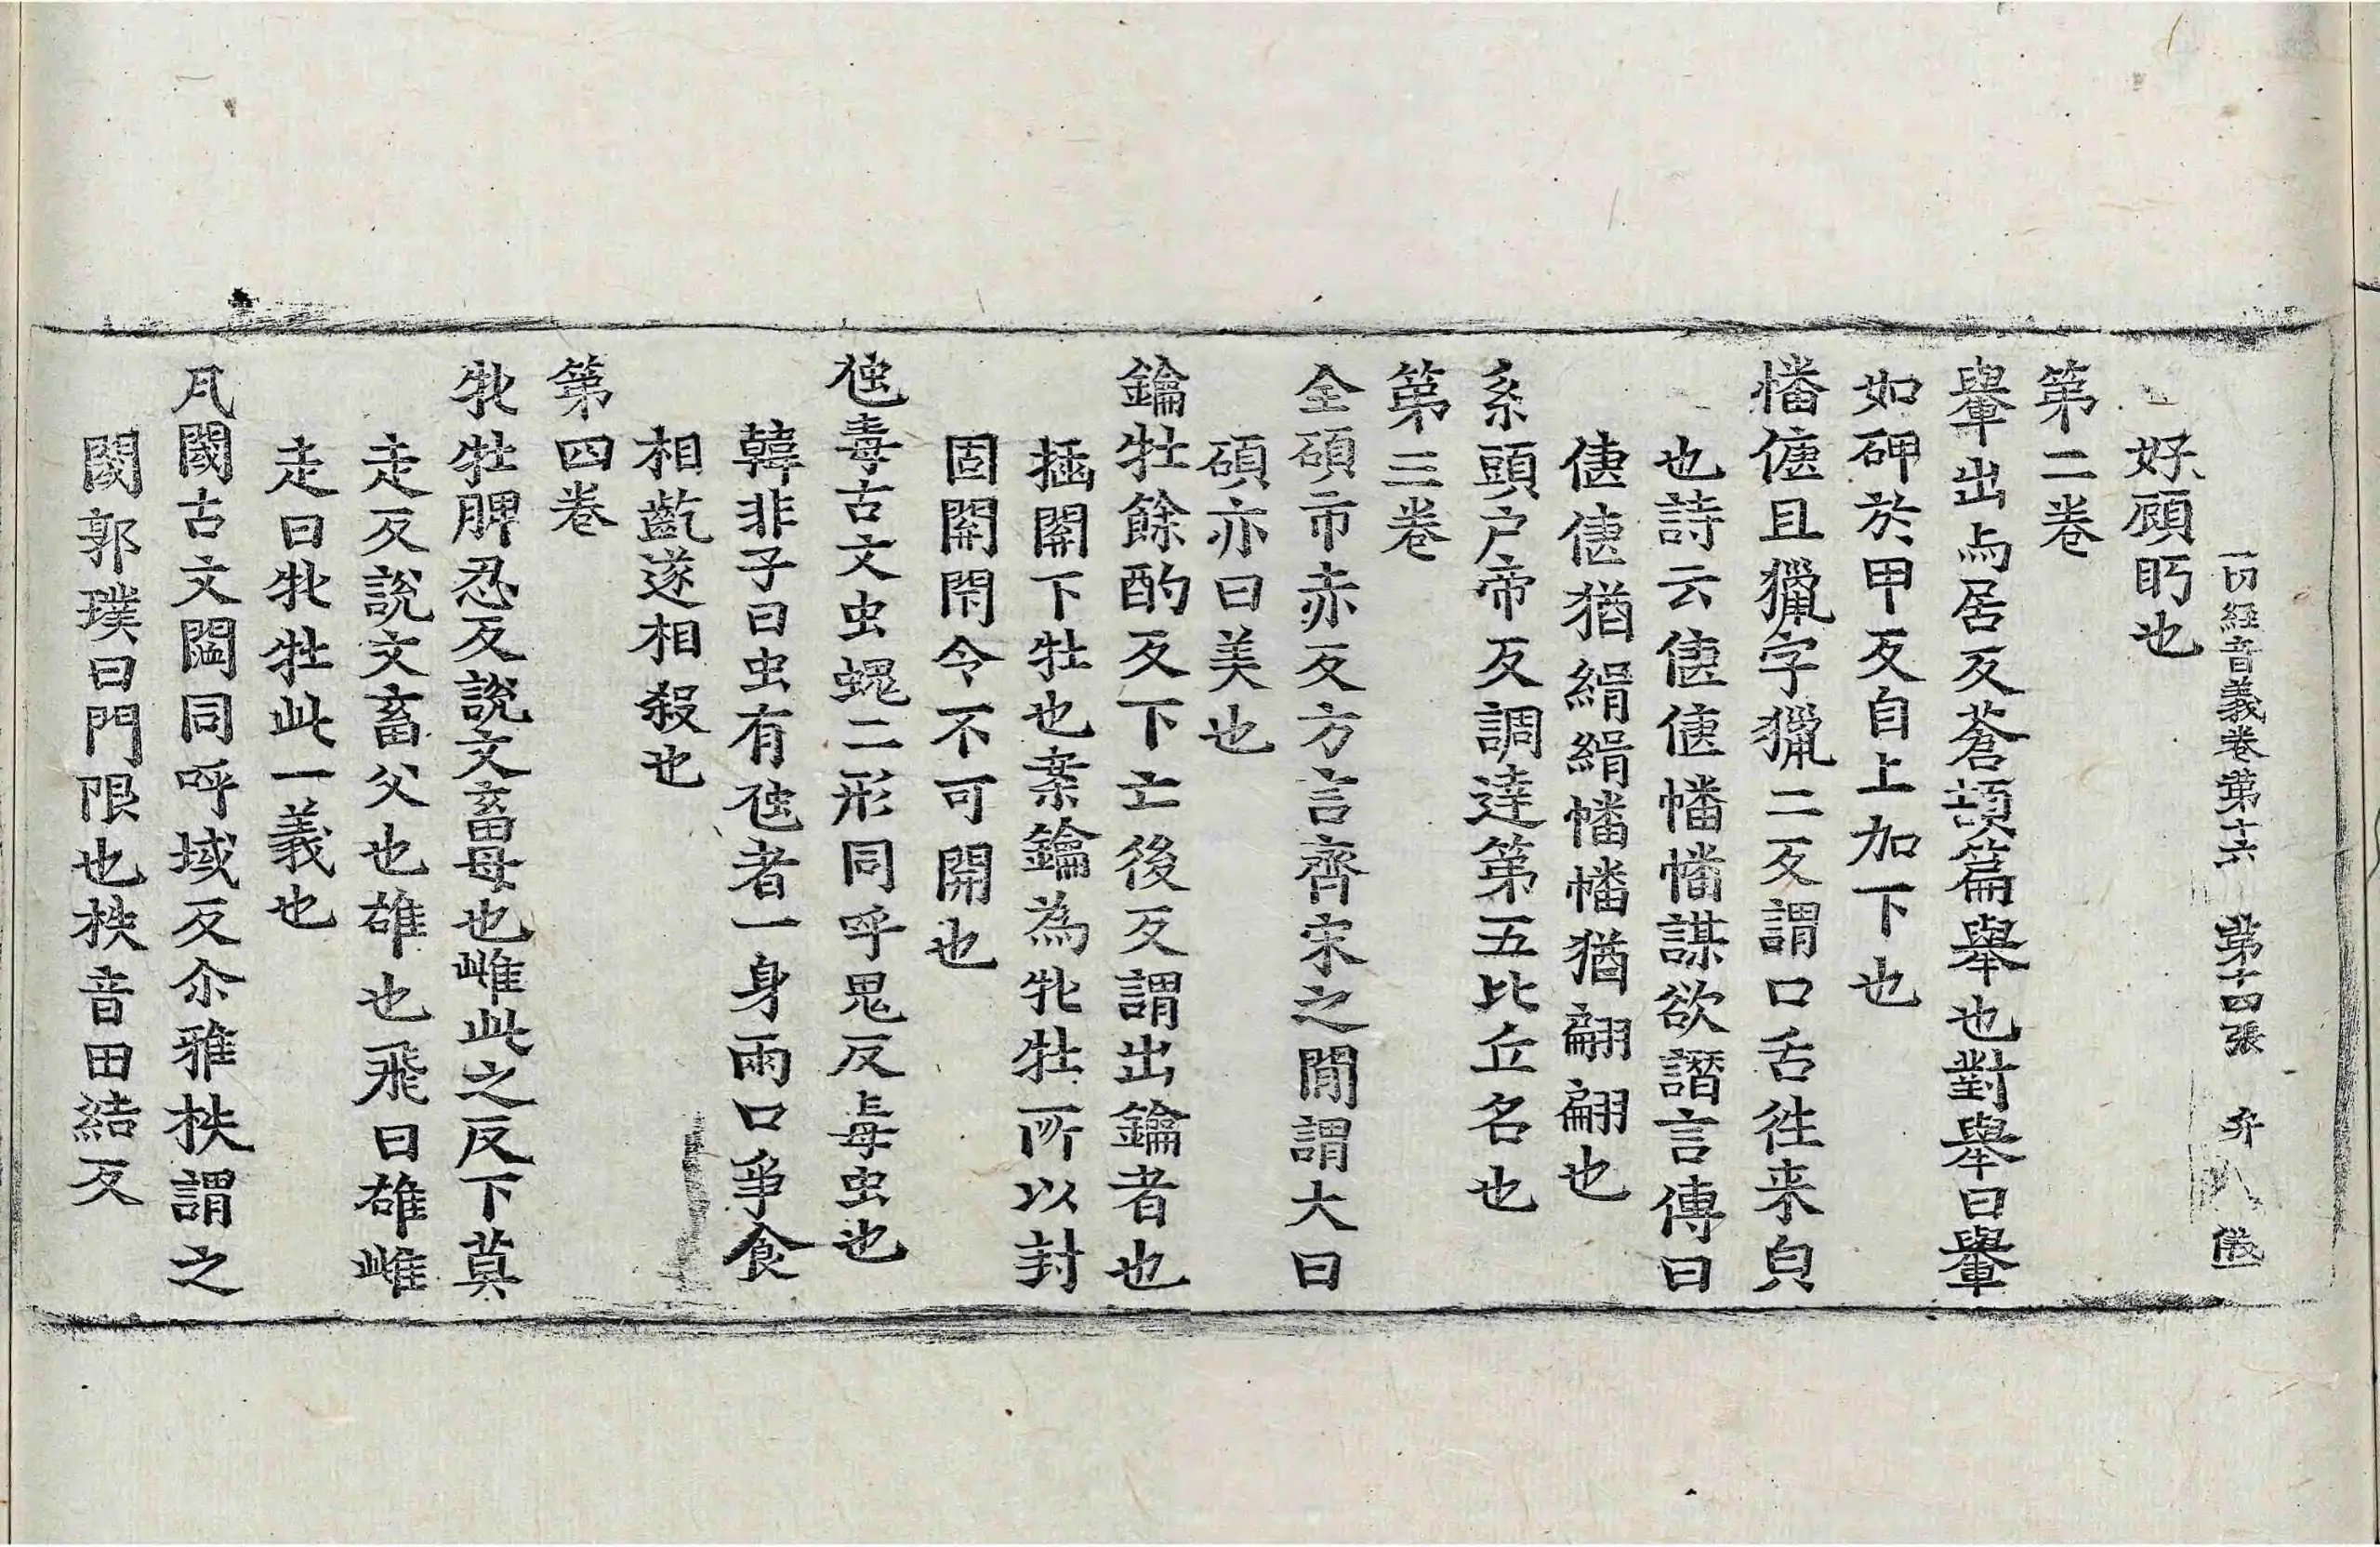 一切經音義卷第十六 第十四張 弁
好顧眄也
第二卷
轝出与居反蒼頡篇舉也對舉曰轝
如砰於甲反自上加下也
憣偼且獵字獵二反謂口舌往来皃
也詩云偼偼幡幡謀欲譖言傳曰
偼偼猶緝緝幡幡猶翩翩也
系頭户帝反調達第五比丘名也
第三卷
全碩市赤反方言齊宋之閒謂大曰
碩亦曰美也
鑰牡餘酌反下亡後反謂出鑰者也
插關下牡也案鑰為牝牡所以封
固關閇令不可開也
虺毒古文虫螝二形同呼鬼反毒虫也
韓非子曰虫有虺者一身兩口爭食
相齕遂相殺也
第四卷
牝牡脾忍反說文畜母也雌此之反下莫
走反說文畜父也雄也飛曰雄雌
走曰牝牡此一義也
凡閾古文閾同呼域反尒雅柣謂之
閾郭璞曰門限也柣音田結反